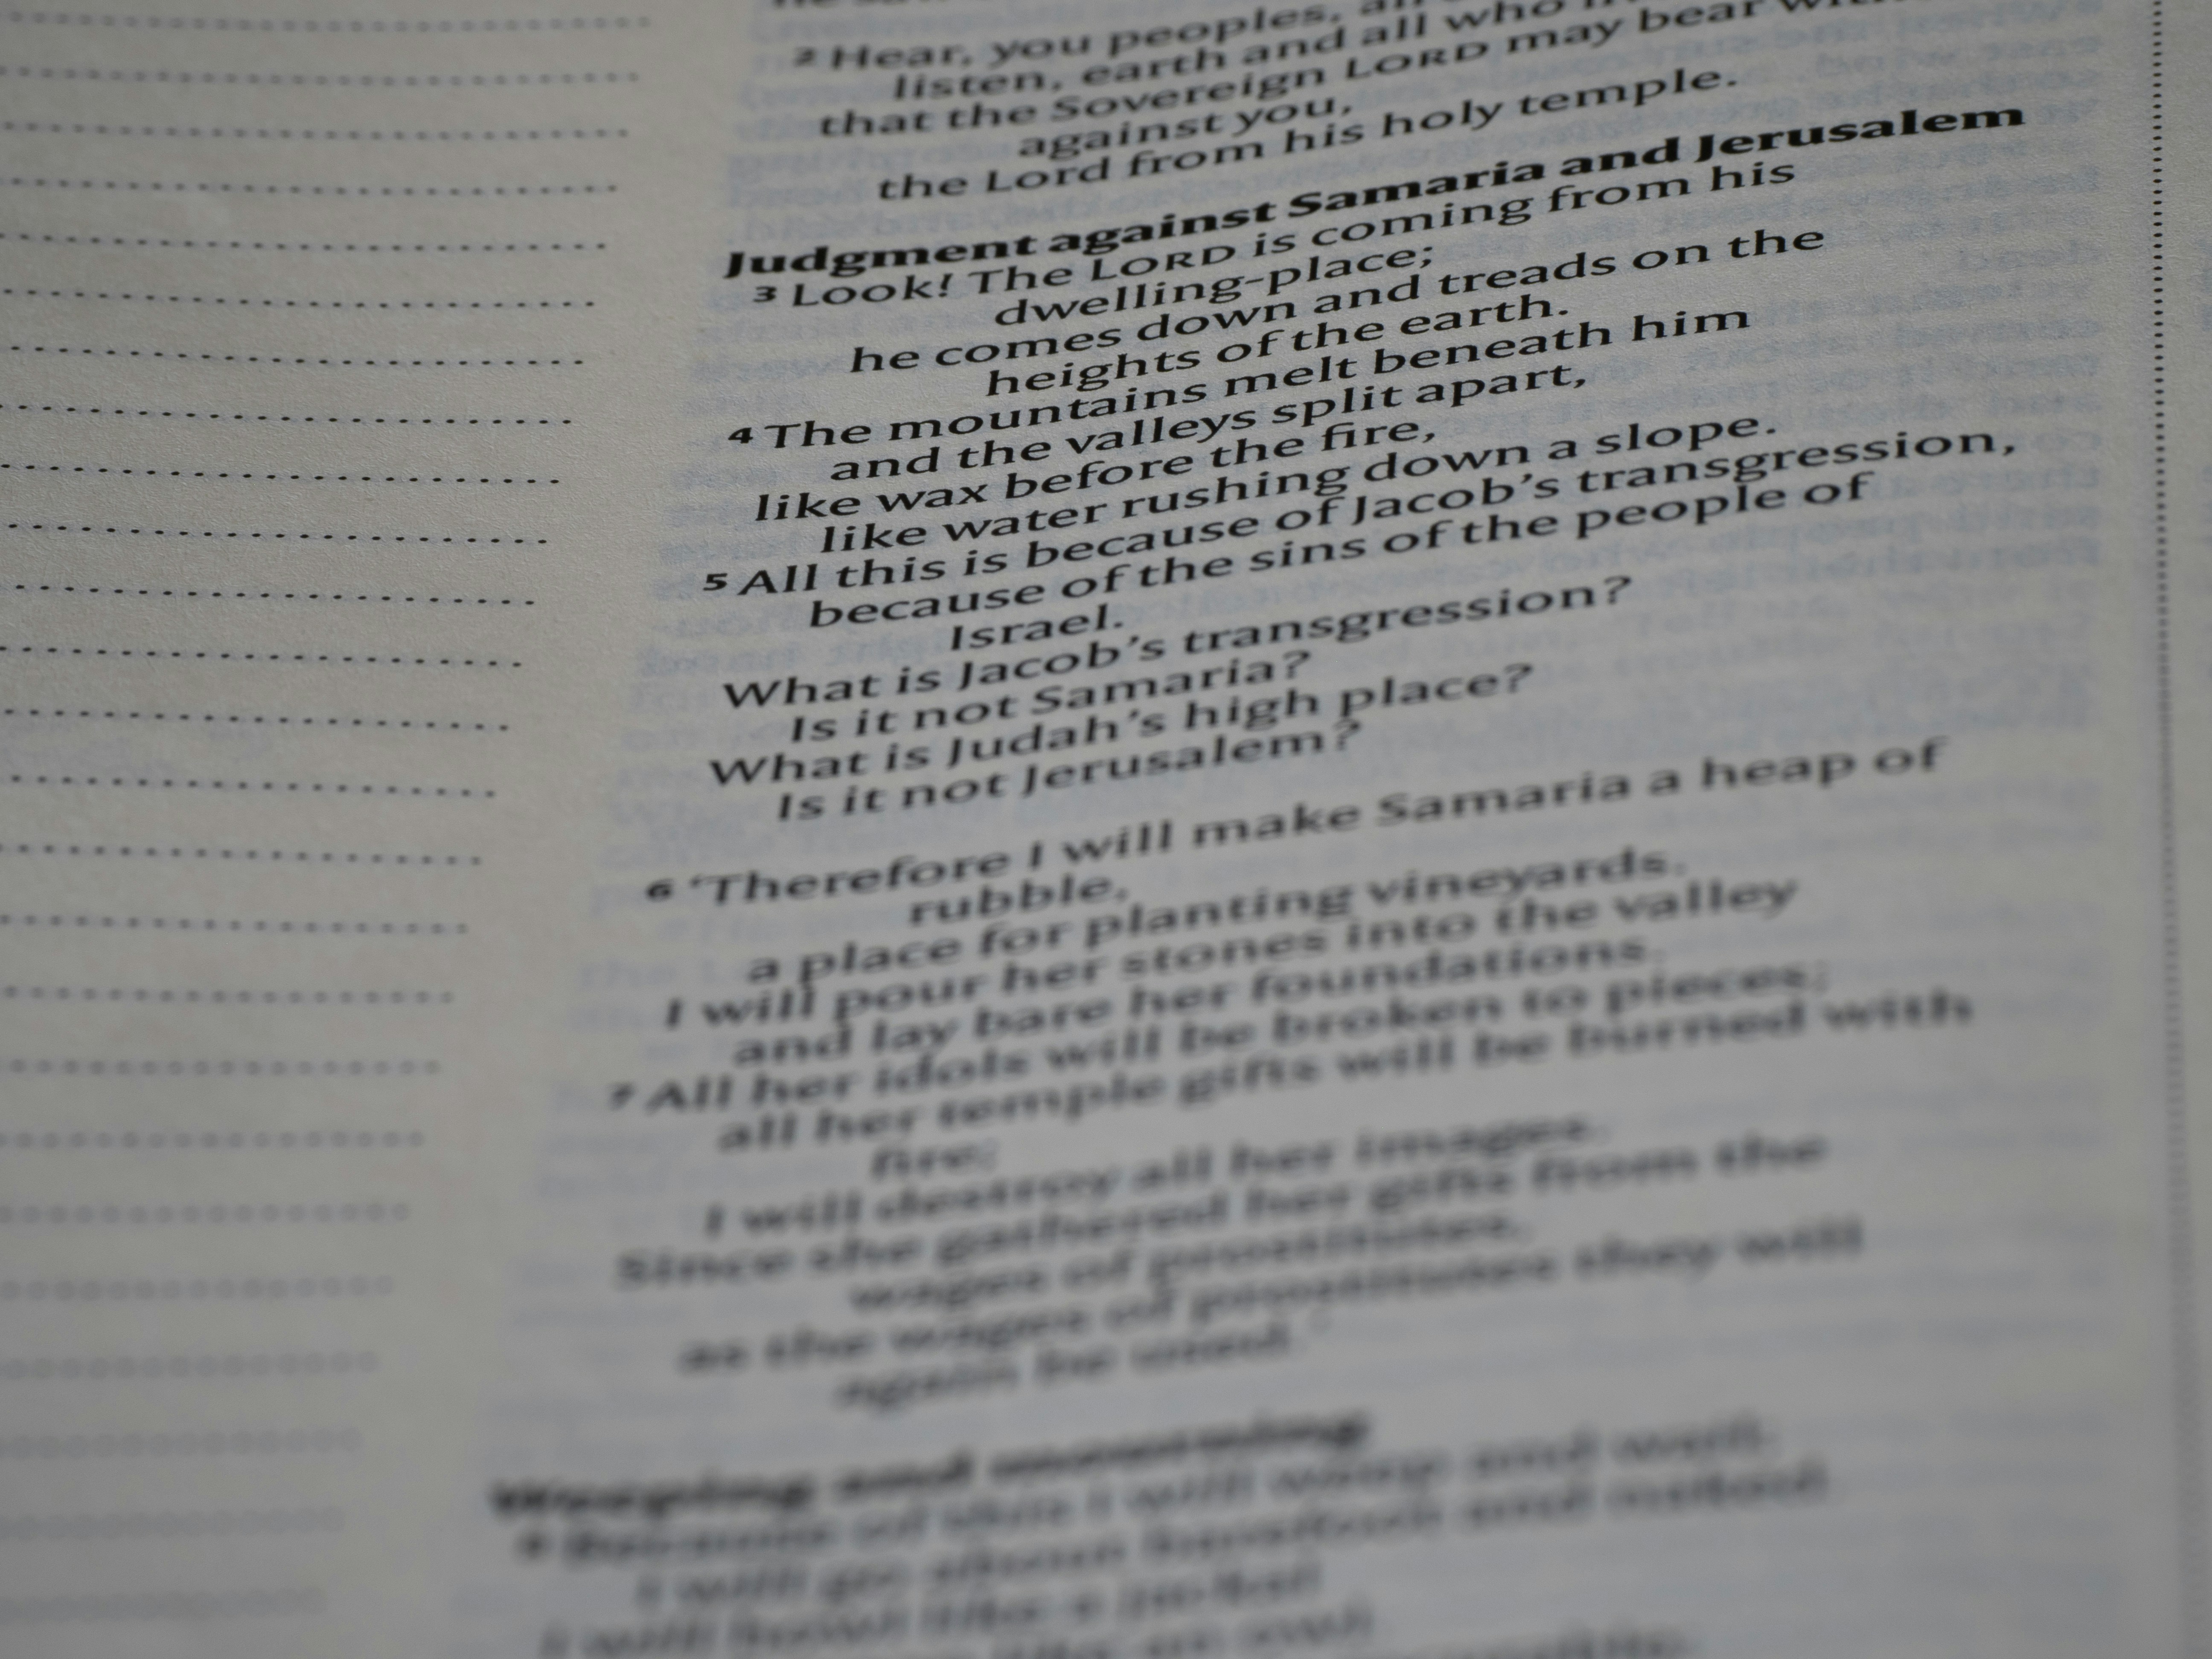 2 Hear, you peoples,
listen, earth and all who
that the Sovereign LORD may bear
against you,
the Lord from his holy temple.
Judgment against Samaria and Jerusalem
3 Look! The LORD is coming from his
dwelling-place;
he comes down and treads on the
heights of the earth.
4 The mountains melt beneath him
and the valleys split apart,
like wax before the fire,
like water rushing down a slope.
5 All this is because of Jacob’s transgression,
because of the sins of the people of
Israel.
What is Jacob’s transgression?
Is it not Samaria?
What is Judah’s high place?
Is it not Jerusalem?
6 ‘Therefore I will make Samaria a heap of
rubble,
a place for planting vineyards.
I will pour her stones into the valley
and lay bare her foundations.
7 All her idols will be broken to pieces;
all her temple gifts will be burned with
fire;
I will destroy all her images.
Since she gathered her gifts from the
wages of prostitutes,
as the wages of prostitutes they will
again be used.’
Weeping and mourning
I will weep and wail;
I will go about barefoot and naked.
I will howl like a jackal